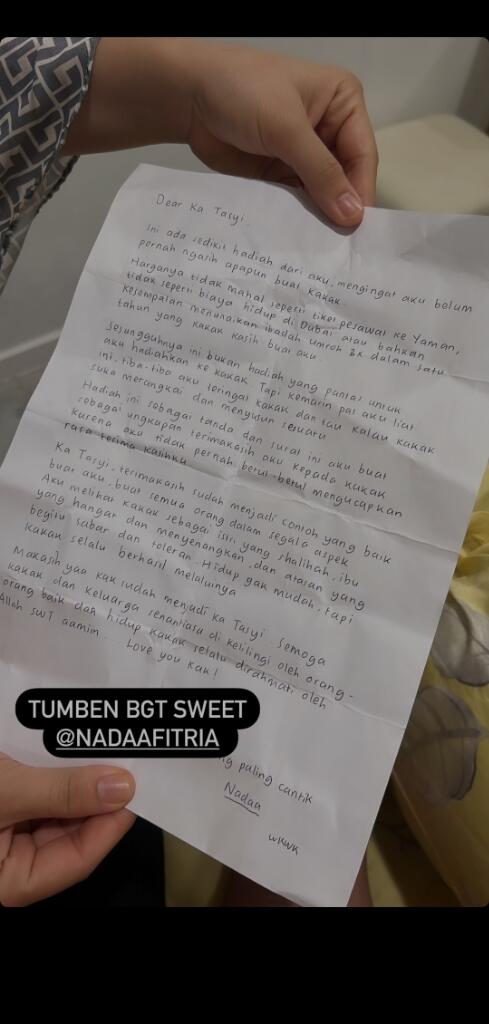 Dear Ka Tasyi,
Ini ada sedikit hadiah dari aku, mengingat aku belum
pernah ngasih apapun buat kakak.
Harganya tidak mahal seperti tiket pesawat ke Yaman,
tidak seperti biaya hidup di Dubai atau bahkan
kesempatan menunaikan ibadah umroh 2x dalam satu
tahun yang kakak kasih buat aku.
Sesungguhnya ini bukan hadiah yang pantas untuk
aku hadiahkan ke kakak. Tapi kemarin pas aku liat
ini, tiba-tiba aku teringat kakak dan tau kalau kakak
suka merangkai dan menyusun sesuatu
Hadiah ini sebagai tanda dan surat ini aku buat
sebagai ungkapan terimakasih aku kepada kakak
karena aku tidak pernah betul-betul mengucapkan
rasa terima kasihku
Ka Tasyi, terimakasih sudah menjadi contoh yang baik
buat aku, buat semua orang dalam segala aspek
Aku melihat kakak sebagai istri yang shalihah, ibu
yang hangat dan menyenangkan, dan atasan yang
begitu sabar dan toleran. Hidup gak mudah, tapi
kakak selalu berhasil melaluinya
Makasih yaa kak sudah menjadi Ka Tasyi. Semoga
kakak dan keluarga senantiasa di kelilingi oleh orang-
orang baik dan hidup kakak selalu dirahmati oleh
Allah SWT aamiin... Love you kak!
TUMBEN BGT SWEET
@NADAAFITRIA
ng paling cantik
Nadaa
wkwk